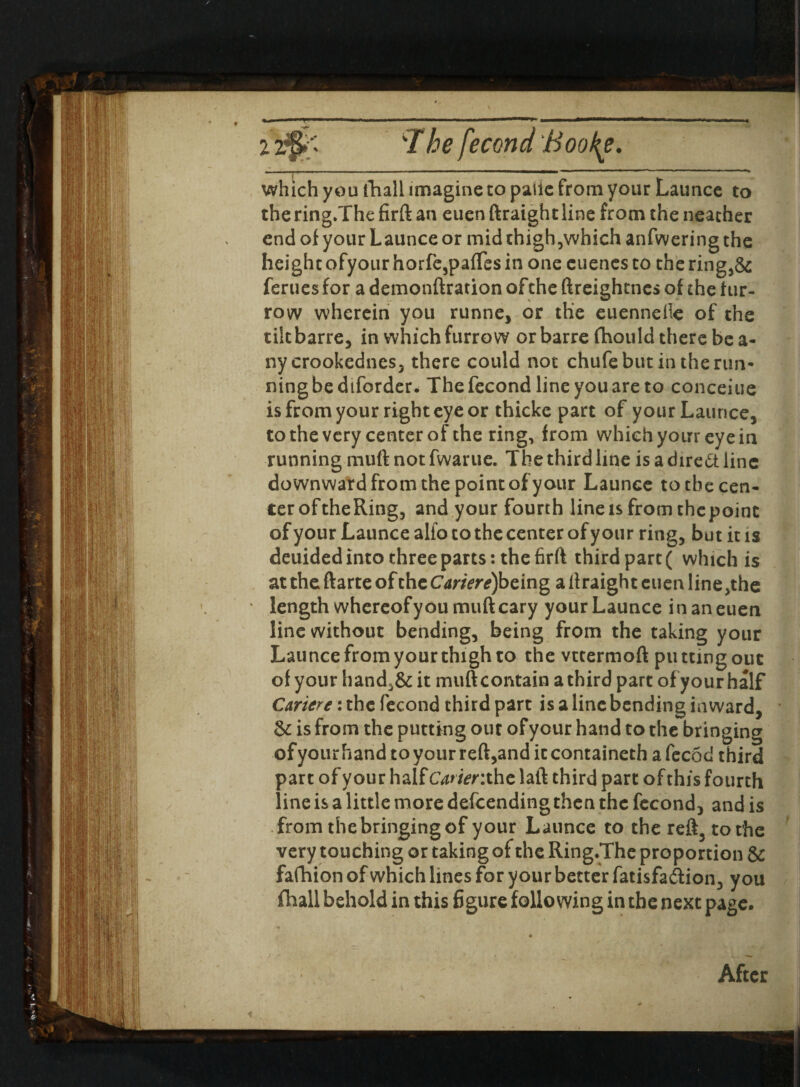 22 The ſecond Booke.
which you ſhall imagine to paſſe from your Launce to
the ring.The firſt an euen ſtraight line from the neather
end of your Launce or mid thigh,which anſwering the
height of your horſe,paſſes in one euenes to the ring,&
ſerues for a demonſtration of the ſtreightnes of the fur-
row wherein you runne, or the euenneſſe of the
tilt barre, in which furrow or barre ſhould there be a-
ny crookednes, there could not chuſe but in the run-
ning be diſorder. The ſecond line you are to conceiue
is from your right eye or thicke part of your Launce,
to the very center of the ring, from which your eye in
running muſt not ſwarue. The third line is a direct line
downward from the point of your Launce to the cen-
ter of the Ring, and your fourth line is from the point
of your Launce alſo to the center of your ring, but it is
deuided into three parts: the firſt third part ( which is
at the ſtarte of the Cariere)being a ſtraight euen line,the
length whereof you muſt cary your Launce in an euen
line without bending, being from the taking your
Launce from your thigh to the vttermoſt putting out
of your hand,& it muſt contain a third part of your half
Cariere: the ſecond third part is a line bending inward,
& is from the putting out of your hand to the bringing
of your hand to your reſt,and it containeth a ſecōd third
part of your half Carier:the laſt third part of this fourth
line is a little more deſcending then the ſecond, and is
from the bringing of your Launce to the reſt, to the
very touching or taking of the Ring.The proportion &
faſhion of which lines for your better ſatisfaction, you
ſhall behold in this figure following in the next page.
After